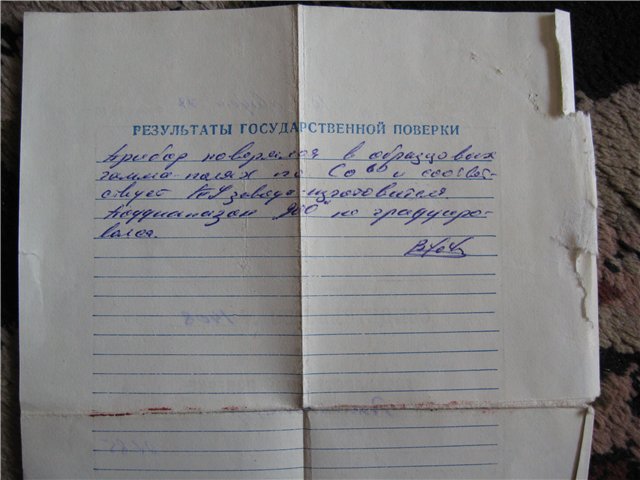 РЕЗУЛЬТАТЫ ГОСУДАРСТВЕННОЙ ПОВЕРКИ
Прибор поверялся в образцовых
гамма-полях по Co60 и соответ-
ствует завода-изготовителя.
Поддиапазон не градуиро-
вался.